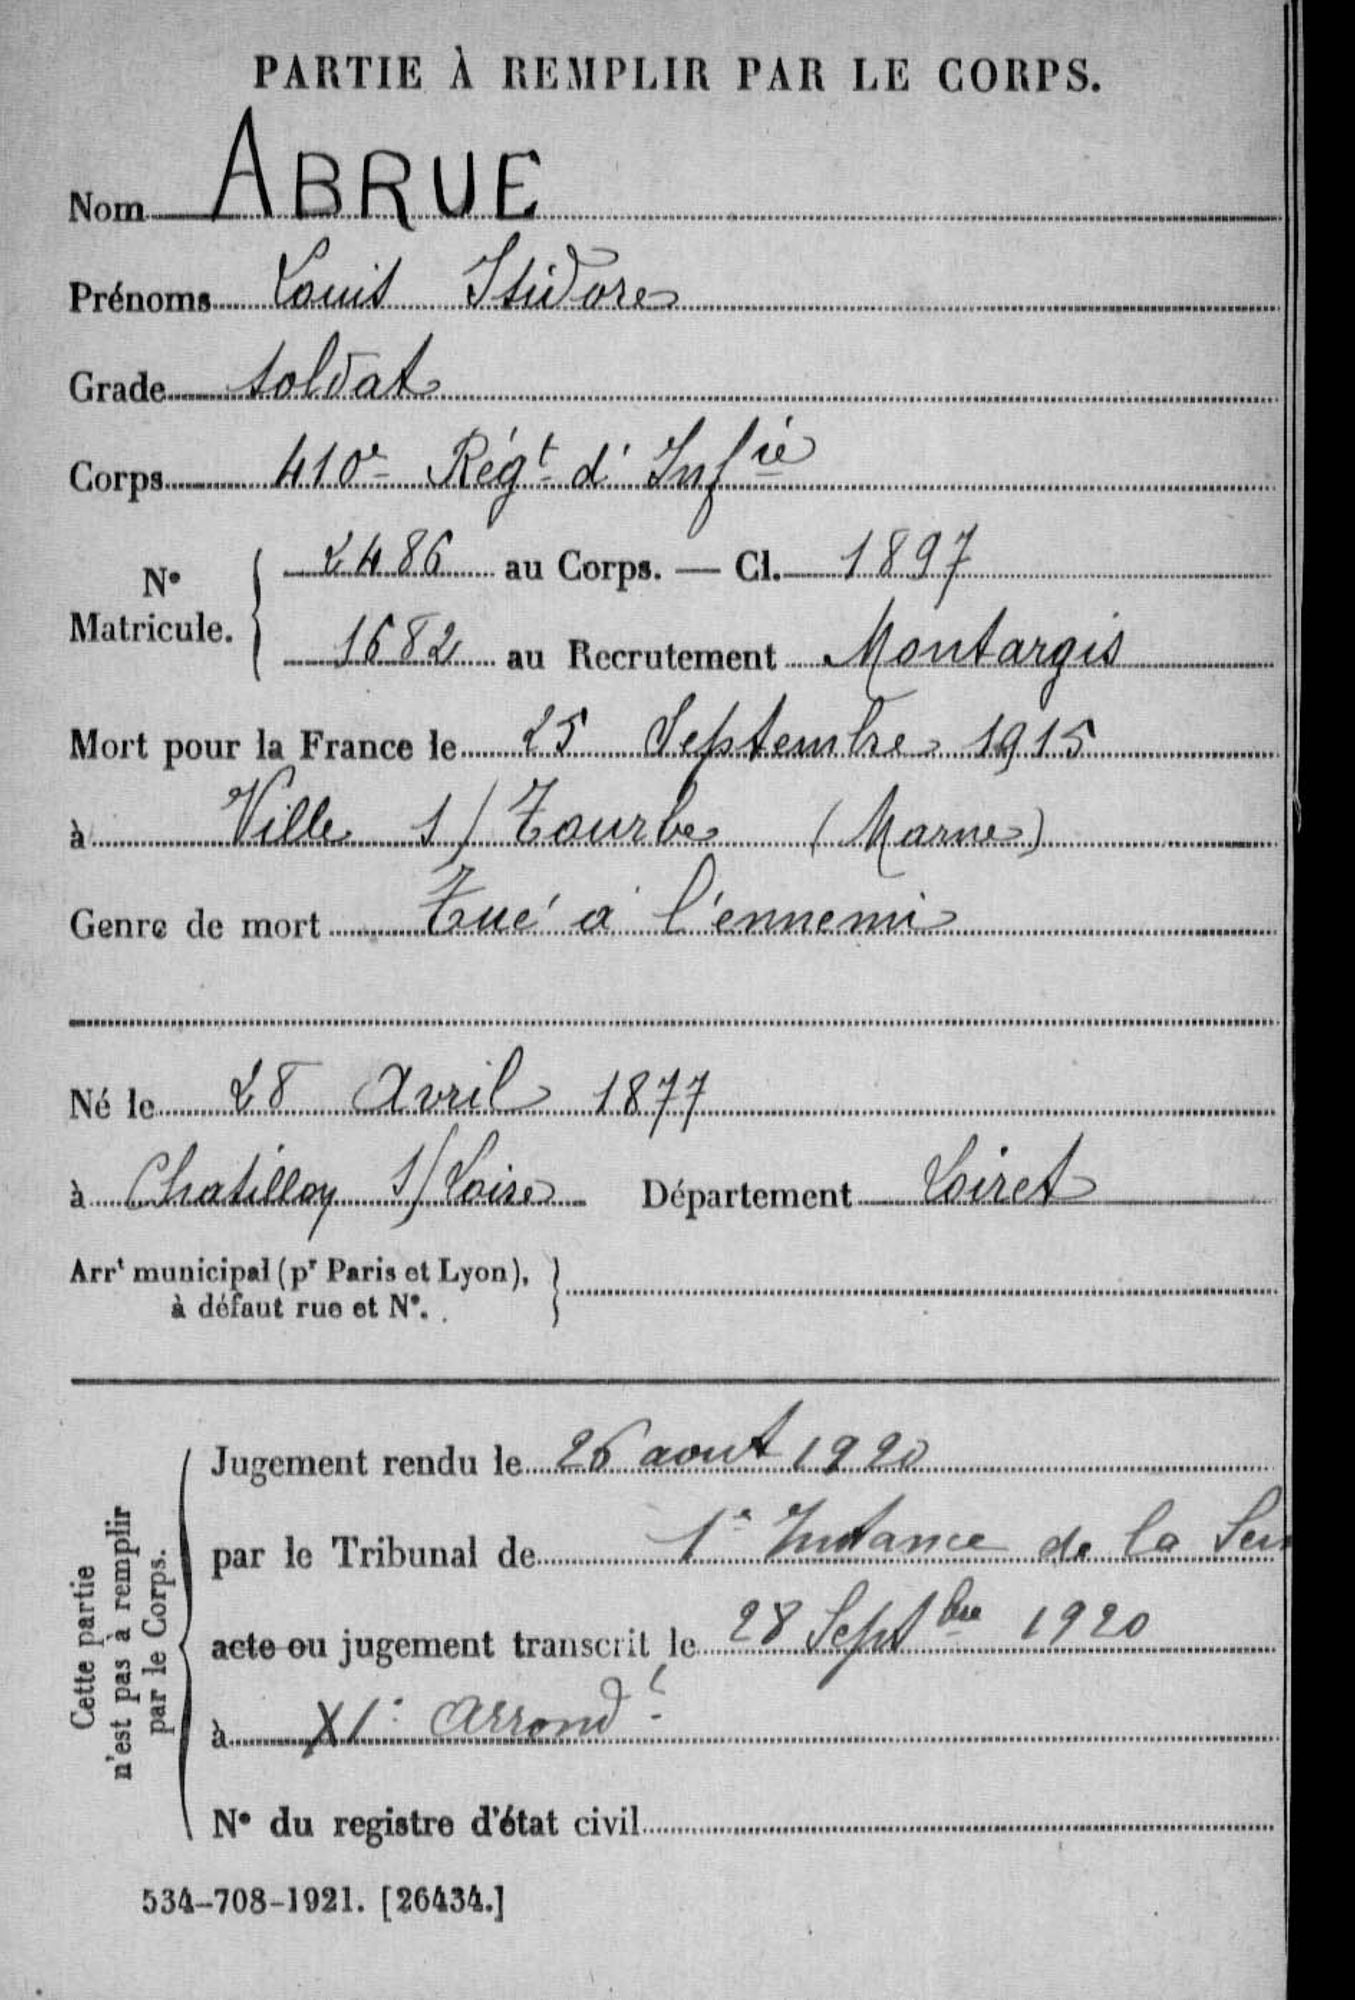 PARTIE À REMPLIR PAR LE CORPS.
Nom ABRUE
Prénoms Louis Isidore
Grade soldat
Corps 410e Régt d'Infie
2486 au Corps. — Cl. 1897
N° Matricule.
1682 au Recrutement Montargis
Mort pour la France le 25 Septembre 1915
à Ville s/Tourbe (Marne)
Genre de mort Tué à l'ennemi
Né le 28 Avril 1877
à Chatillon s/Loire Département Loiret
Arrt municipal (pr Paris et Lyon),
à défaut rue et N°.
Cette partie
n'est pas à remplir
par le Corps.
Jugement rendu le 26 aout 1920
par le Tribunal de 1e Instance de la Sei
acte ou jugement transcrit le 28 Septbre 1920
à XIe Arrondt
N° du registre d'état civil
534-708-1921. [26434.]